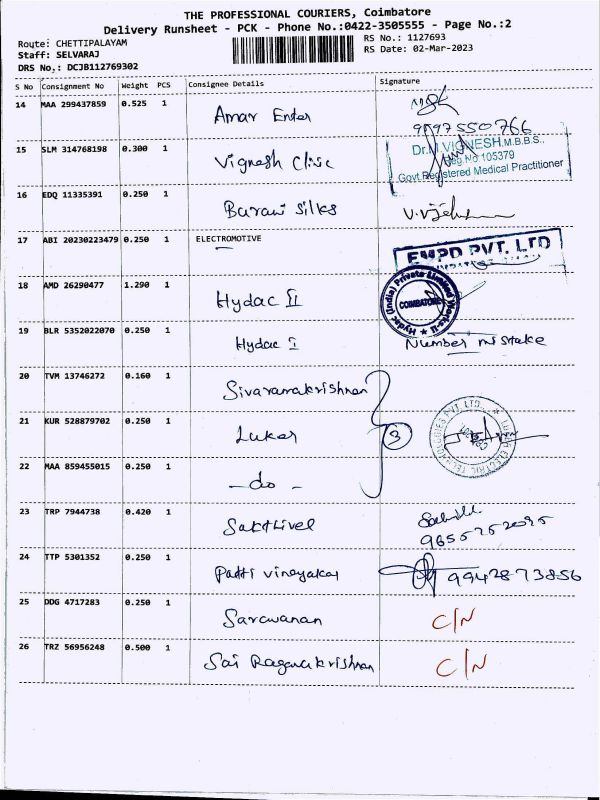 THE PROFESSIONAL COURIERS, Coimbatore
Delivery Runsheet - PCK - Phone No.:0422-3505555 - Page No.:2
Route: CHETTIPALAYAM
RS No.: 1127693
Staff: SELVARAJ
RS Date: 02-Mar-2023
DRS No.: DCJB112769302
S No Consignment No Weight PCS Consignee Details Signature
14 MAA 299437859 0.525 1 Amar Enter
15 SLM 314768198 0.300 1 Vignesh Clinc
Dr. VIGNESH, M.B.B.S.,
Reg.No 105379
Govt Registered Medical Practitioner
16 EDQ 11335391 0.250 1 Barani Silks
17 ABI 20230223479 0.250 1 ELECTROMOTIVE
EMPD PVT. LTD
18 AMD 26290477 1.290 1 Hydac II
Hydac (India) Private Limited
COIMBATORE
19 BLR 5352022070 0.250 1 Hydac I Number mistake
20 TVM 13746272 0.160 1 Sivaramakrishnan
21 KUR 528879702 0.250 1 Lukas 3
22 MAA 859455015 0.250 1 - do -
23 TRP 7944738 0.420 1 Sakthivel
24 TTP 5301352 0.250 1 Patti vinayakar 9942873856
25 DDG 4717283 0.250 1 Saravanan C/N
26 TRZ 56956248 0.500 1 Sai Ragavakrishnan C/N